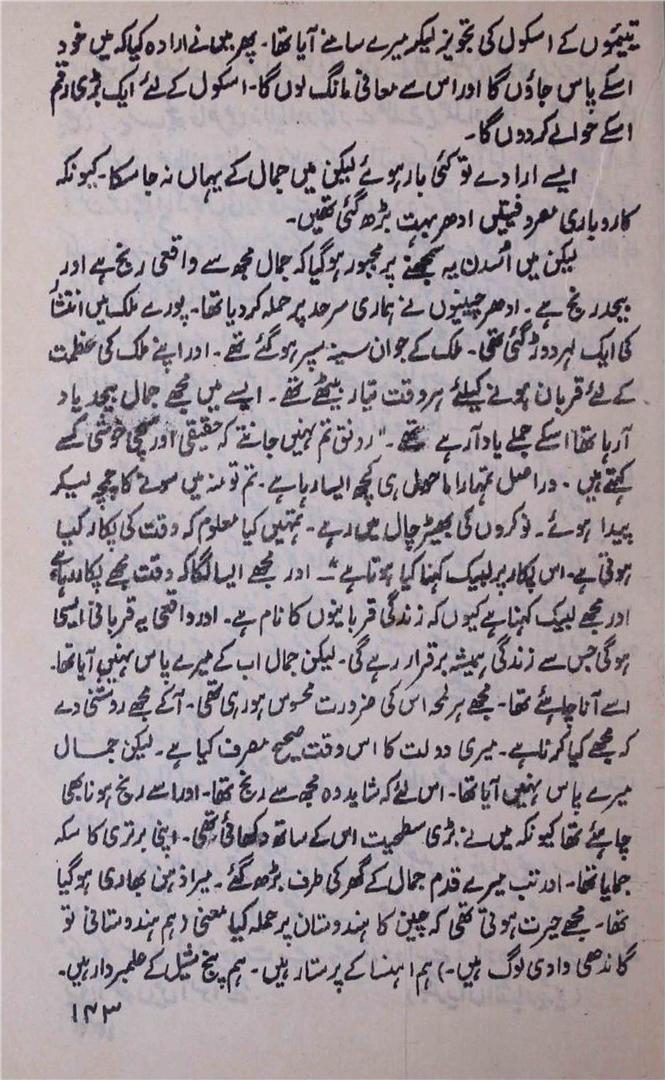 یتیموں کے اسکول کی تجویز لیکر میرے سامنے آیا تھا۔ پھر میں نے ارادہ کیا کہ میں خود
اسکے پاس جاؤں گا اور اس سے معافی مانگ لوں گا۔ اسکول کے لئے ایک بڑی رقم
اسکے حوالے کردوں گا۔
ایسے ارادے تو کئی بار ہوئے لیکن میں جمال کے یہاں نہ جا سکا۔ کیونکہ
کاروباری مصروفیتیں ادھر بہت بڑھ گئی تھیں۔
لیکن میں اُسدن یہ سمجھنے پر مجبور ہوگیا کہ جمال مجھ سے واقعی رنج ہے اور
بیحد رنج ہے۔ ادھر چینیوں نے ہماری سرحد پر حملہ کردیا تھا۔ پورے ملک میں انتشار
کی ایک لہر دوڑ گئی تھی۔ ملک کے جوان سینہ سپر ہوگئے تھے۔ اور اپنے ملک کی عظمت
کے لئے قربان ہونے کیلئے ہر وقت تیار بیٹھے تھے۔ ایسے میں مجھے جمال بیحد یاد
آرہا تھا اسکے جملے یاد آرہے تھے۔ "رونق تم نہیں جانتے کہ حقیقی اور سچی خوشی کسے
کہتے ہیں۔ دراصل تمہارا ماحول ہی کچھ ایسا رہا ہے۔ تم تو منہ میں سونے کا چمچہ لیکر
پیدا ہوئے۔ نوکروں کی بھیڑ چال میں رہے۔ تمہیں کیا معلوم کہ وقت کی پکار کیا
ہوتی ہے۔ اس پکار پر لبیک کہنا کیا ہوتا ہے"۔ اور مجھے ایسا لگا کہ وقت مجھے پکار رہا ہے
اور مجھے لبیک کہنا ہے کیوں کہ زندگی قربانیوں کا نام ہے۔ اور واقعی یہ قربانی ایسی
ہوگی جس سے زندگی ہمیشہ برقرار رہے گی۔ لیکن جمال اب کے میرے پاس نہیں آیا تھا۔
اسے آنا چاہئے تھا۔ مجھے ہر لمحہ اس کی ضرورت محسوس ہو رہی تھی۔ آکے مجھے روشنی دے
کہ مجھے کیا کرنا ہے۔ میری دولت کا اس وقت صحیح مصرف کیا ہے۔ لیکن جمال
میرے پاس نہیں آیا تھا۔ اس لئے کہ شاید وہ مجھ سے رنج تھا۔ اور اسے رنج ہونا بھی
چاہئے تھا کیونکہ میں نے بڑی سطحیت اس کے ساتھ دکھائی تھی۔ اپنی برتری کا سکہ
جمایا تھا۔ اور تب میرے قدم جمال کے گھر کی طرف بڑھ گئے۔ میرا ذہن بھاری ہوگیا
تھا۔ مجھے حیرت ہوتی تھی کہ چین کا ہندوستان پر حملہ کیا معنی (ہم ہندوستانی تو
گاندھی وادی لوگ ہیں۔) ہم اہنسا کے پرستار ہیں۔ ہم پنچ شیل کے علمبردار ہیں۔
۱۴۳